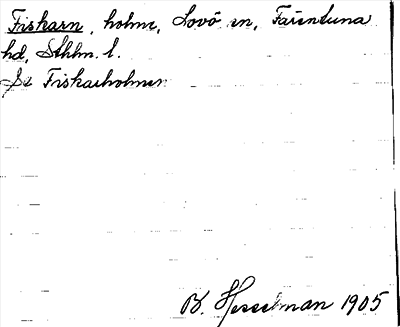 Fiskarn, holme, Lovö sn, Färentuna
hd, Sthlm. l.
Se Fiskarholmen
B. Hesselman 1905